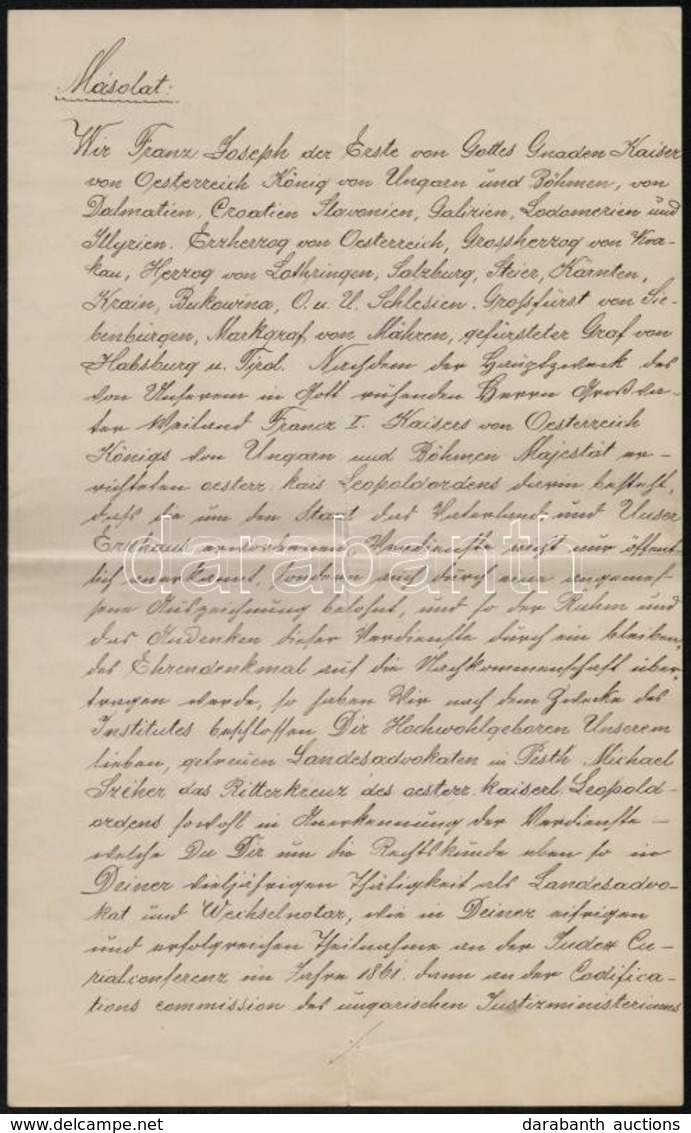 Másolat:
Wir Franz Joseph der Erste von Gottes Gnaden Kaiser
von Oesterreich König von Ungarn und Böhmen, von
Dalmatien, Croatien Slavonien, Galizien, Lodomerien und
Illyrien. Erzherzog von Oesterreich, Grossherzog von Kra-
kau, Herzog von Lothringen, Salzburg, Steier, Kärnten,
Krain, Bukowina, O. u. U. Schlesien. Großfürst von Sie-
benbürgen, Markgraf von Mähren, gefürsteter Graf von
Habsburg u. Tirol. Nachdem der Hauptzweck des
von Unserem in Gott ruhenden Herrn Großva-
ter Weiland Franz I. Kaisers von Oesterreich
Königs von Ungarn und Böhmen Majestät er-
richteten oesterr. kais Leopoldordens darin besteht,
daß die um den Staat das Vaterland und Unser
Erzhaus erworbenen Verdienste nicht nur öffent-
lich anerkannt, sondern auch durch eine angemes-
sene Auszeichnung belohnt, und so der Ruhm und
das Andenken dieser Verdienste durch ein bleiben-
des Ehrendenkmal auf die Nachkommenschaft über-
tragen werde, so haben Wir nach dem Zwecke des
Institutes beschlossen Dir Hochwohlgeboren Unserem
lieben, getreuen Landesadvokaten in Pesth Michael
Széher das Ritterkreuz des oesterr. kaiserl. Leopold-
ordens sowohl in Anerkennung der Verdienste –
welche Du Dir um die Rechtskunde eben so in
Deiner vieljährigen Thätigkeit als Landesadvo-
kat und Wechselnotar, wie in Deiner eifrigen
und erfolgreichen Theilnahme an der Judex Cu-
rialconferenz im Jahre 1861. dann an der Codifica-
tions commission des ungarischen Justizministeriums
./.
darabanth
darabanth auctions